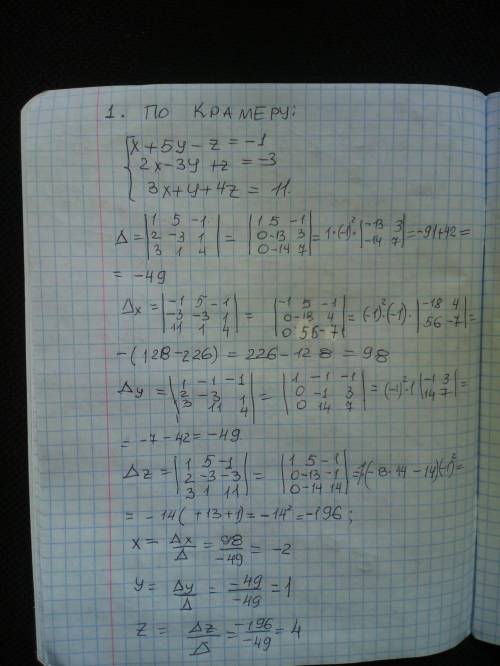 1. ПО КРАМЕРУ:
{x+5y-z=-1
2x-3y+z=-3
3x+y+4z=11
Δ=|1 5 -1; 2 -3 1; 3 1 4|=|1 5 -1; 0 -13 3; 0 -14 7|=1·(-1)²·|-13 3; -14 7|=-91+42=
=-49
Δx=|-1 5 -1; -3 -3 1; 11 1 4|=|-1 5 -1; 0 -18 4; 0 56 -7|=(-1)²·(-1)·|-18 4; 56 -7|=
-(128-226)=226-128=98
Δy=|1 -1 -1; 2 -3 1; 3 11 4|=|1 -1 -1; 0 -1 3; 0 14 7|=(-1)²·1|-1 3; 14 7|=
=-7-42=-49
Δz=|1 5 -1; 2 -3 -3; 3 1 11|=|1 5 -1; 0 -13 -1; 0 -14 14|=1·(-13·14-14)(-1)²=
=-14(+13+1)=-14²=-196;
x=Δx/Δ=98/-49=-2
y=Δy/Δ=-49/-49=1
z=Δz/Δ=-196/-49=4